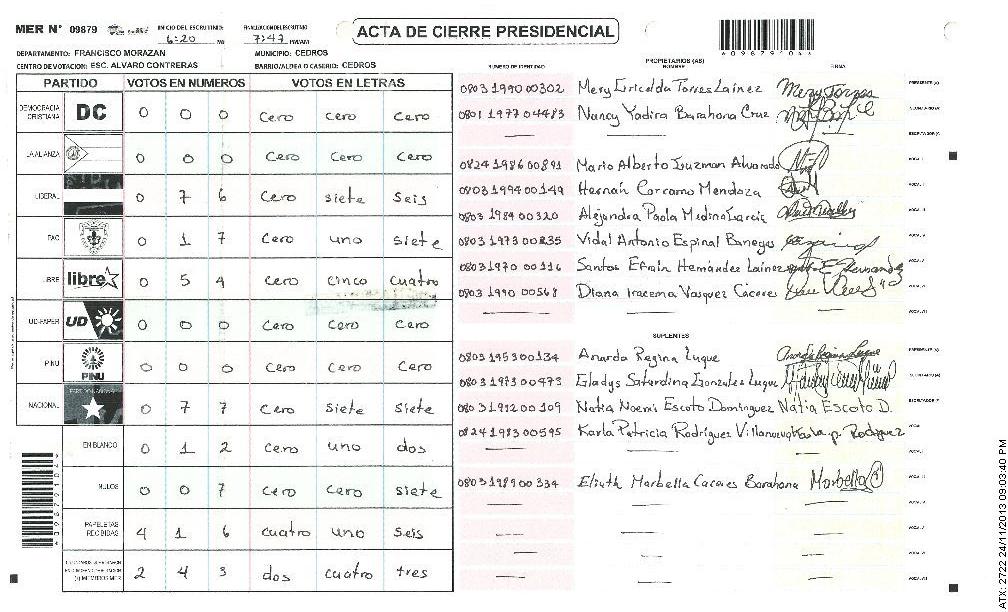 MER N° 09879
INICIO DEL ESCRUTINIO: 6:20
FINALIZACION DEL ESCRUTINIO 7:47 PM/AM
ACTA DE CIERRE PRESIDENCIAL
DEPARTAMENTO: FRANCISCO MORAZAN MUNICIPIO: CEDROS
CENTRO DE VOTACION: ESC. ALVARO CONTRERAS BARRIO/ALDEA O CASERIO: CEDROS
PARTIDO VOTOS EN NUMEROS VOTOS EN LETRAS
DEMOCRACIA CRISTIANA DC 0 0 0 Cero Cero Cero
LA ALIANZA 0 0 0 Cero Cero Cero
LIBERAL 0 7 6 Cero siete Seis
PAC 0 1 7 Cero uno siete
LIBRE libre 0 5 4 Cero cinco cuatro
UD-FAPER UD 0 0 0 Cero Cero Cero
PINU PINU 0 0 0 Cero Cero Cero
NACIONAL 0 7 7 Cero siete siete
EN BLANCO 0 1 2 Cero uno dos
NULOS 0 0 7 Cero Cero siete
PAPELETAS RECIBIDAS 4 1 6 cuatro uno seis
2 4 3 dos cuatro tres
NUMERO DE IDENTIDAD PROPIETARIOS (AS) NOMBRE FIRMA
0803 1990 00302 Mery Griselda Torres Lainez Mery Torres
0801 1977 04483 Nancy Yadira Barahona Cruz
0824 1986 00891 Mario Alberto Guzman Alvarado
0803 1994 00149 Hernán Carcamo Mendoza
0803 1989 00320 Alejandra Paola Medina Garcia
0803 1973 00235 Vidal Antonio Espinal Banegas
0803 1970 00116 Santos Efraín Hernández Lainez
0803 1990 00568 Diana Iracema Vasquez Cáceres
SUPLENTES
0803 1953 00134 Anarda Regina Luque
0803 1973 00473 Gladys Saturdina Gonzales Luque
0803 1992 00109 Natia Noemi Escoto Dominguez Natia Escoto D.
0824 1983 00595 Karla Patricia Rodríguez Villanueva
0803 1989 00334 Eliuth Marbella Caceres Barahona Marbella
ATX: 2722 24/11/2013 09:03:40 PM